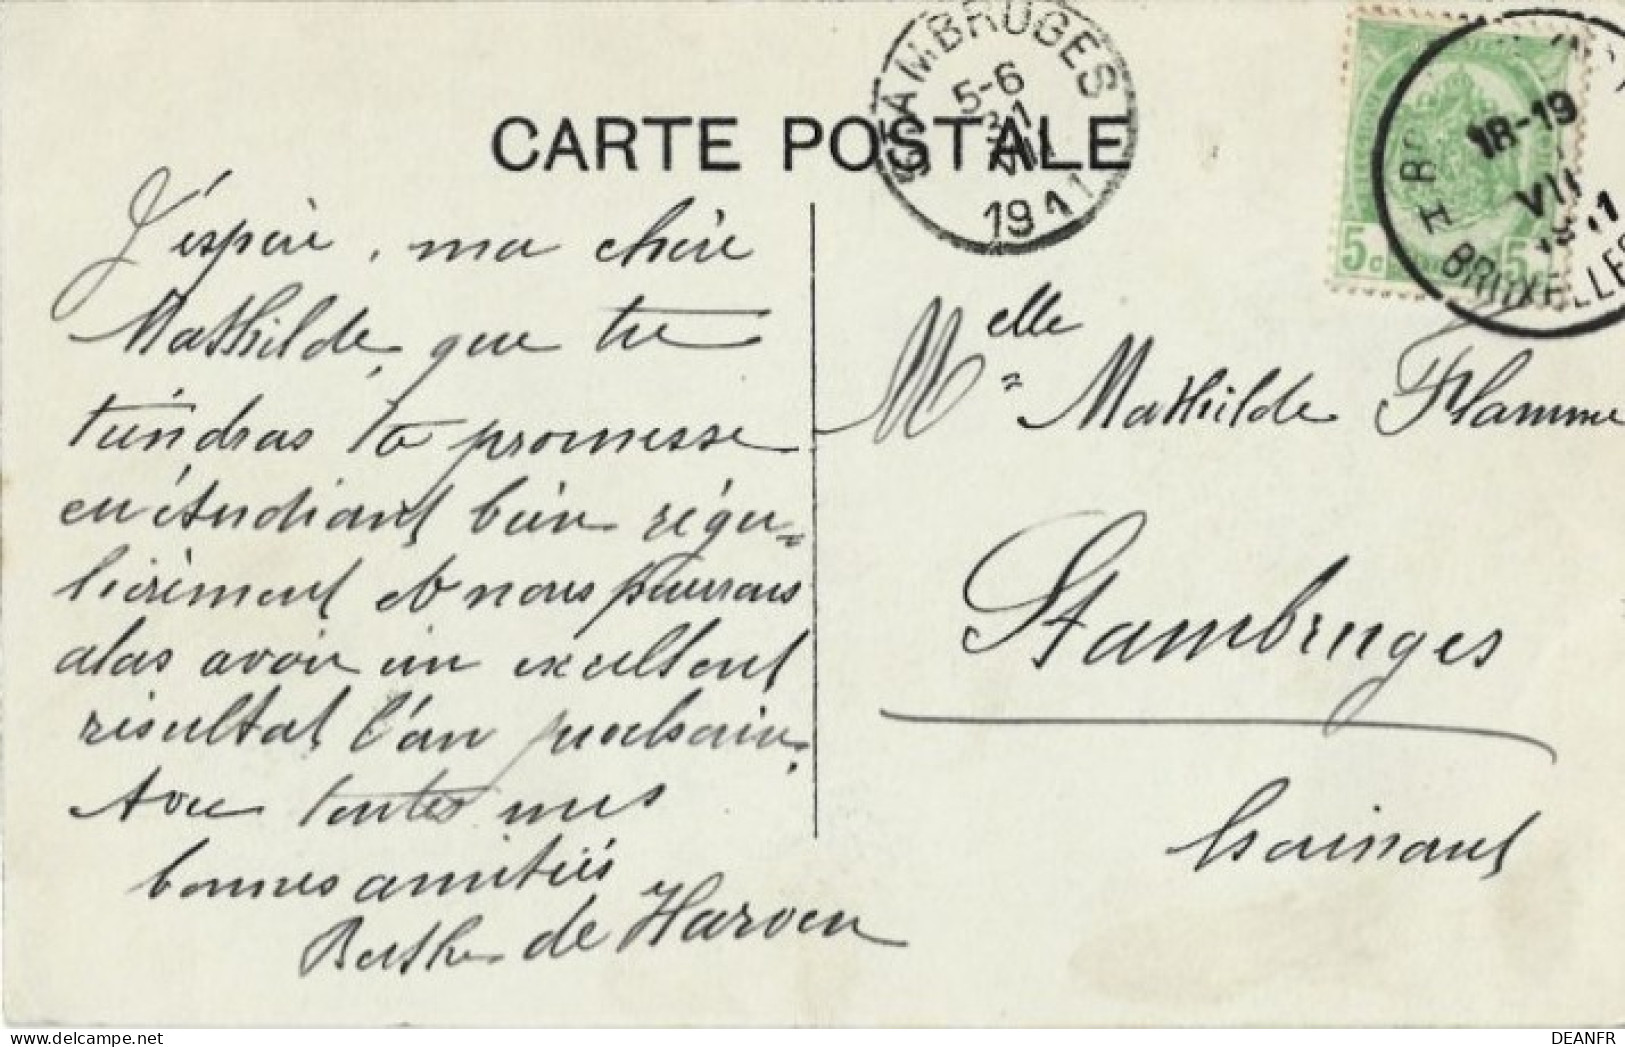 CARTE POSTALE
STAMBRUGES
5-6
31
VII
1911
18-19
VII
1911
BRUXELLES
5c 5c
J'espère, ma chère
Mathilde, que tu
tiendras ta promesse
en étudiant bien régu=
lièrement et nous pourrons
alas avoir un excellent
résultat l'an prochain.
Avec toutes mes
bonnes amitiés
Berthe de Harven
Melle Mathilde Flamme
Stambruges
Hainaut
DEANFR